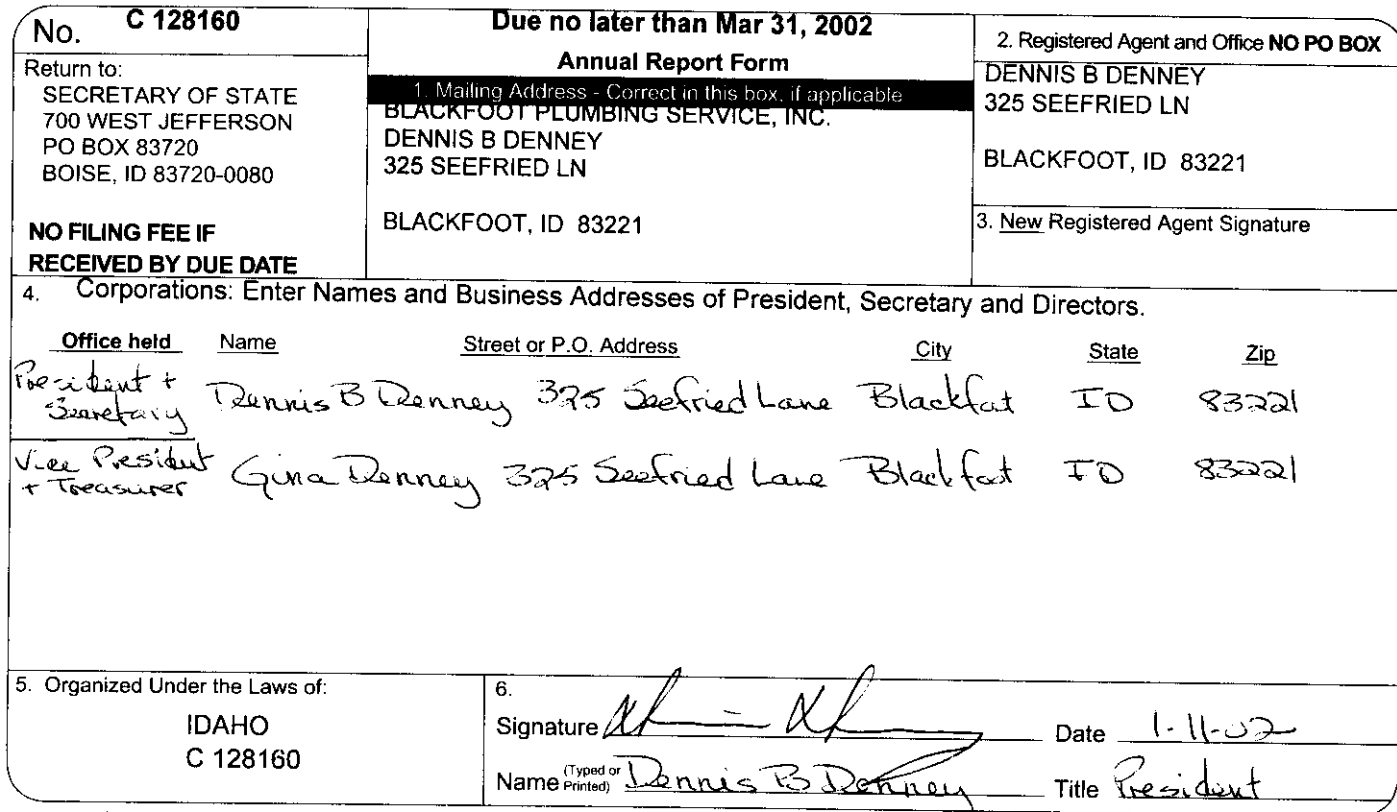 No. C 128160
Return to:
SECRETARY OF STATE
700 WEST JEFFERSON
PO BOX 83720
BOISE, ID 83720-0080
NO FILING FEE IF
RECEIVED BY DUE DATE
Due no later than Mar 31, 2002
Annual Report Form
1. Mailing Address - Correct in this box, if applicable
BLACKFOOT PLUMBING SERVICE, INC.
DENNIS B DENNEY
325 SEEFRIED LN
BLACKFOOT, ID 83221
2. Registered Agent and Office NO PO BOX
DENNIS B DENNEY
325 SEEFRIED LN
BLACKFOOT, ID 83221
3. New Registered Agent Signature
4. Corporations: Enter Names and Business Addresses of President, Secretary and Directors.
Office held Name Street or P.O. Address City State Zip
President +
Secretary Dennis B Denney 325 Seefried Lane Blackfoot ID 83221
Vice President
+ Treasurer Gina Denney 325 Seefried Lane Blackfoot ID 83221
5. Organized Under the Laws of:
IDAHO
C 128160
6.
Signature Date 1-11-02
Name (Typed or Printed) Dennis B Denney Title President